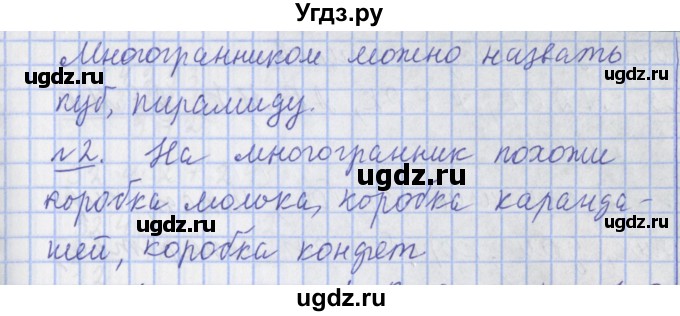 Угдз.ру
Многогранником можно назвать
ugdz.ru ugdz.ru
куб, пирамиду.
ugdz.ru
№2. На многогранник похожи
ugdz.ru
коробка молока, коробка каранда-
ugdz.ru ugdz.ru
шей, коробка конфет
ugdz.ru
ugdz.ru